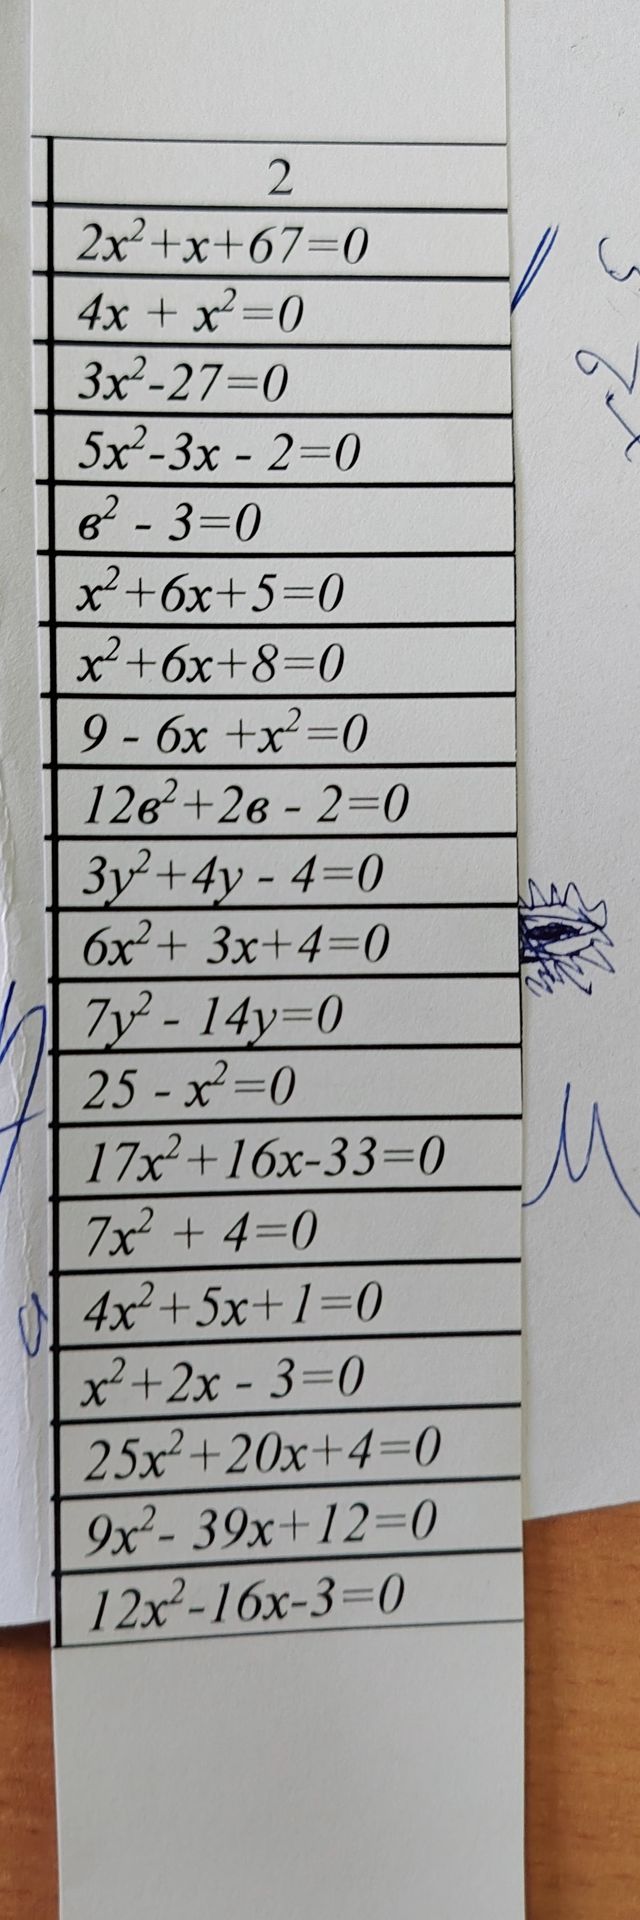 2
2x²+x+67=0
4x + x²=0
3x²-27=0
5x²-3x - 2=0
в² - 3=0
x²+6x+5=0
x²+6x+8=0
9 - 6x +x²=0
12в²+2в - 2=0
3y²+4y - 4=0
6x²+ 3x+4=0
7y² - 14y=0
25 - x²=0
17x²+16x-33=0
7x² + 4=0
4x²+5x+1=0
x²+2x - 3=0
25x²+20x+4=0
9x²- 39x+12=0
12x²-16x-3=0